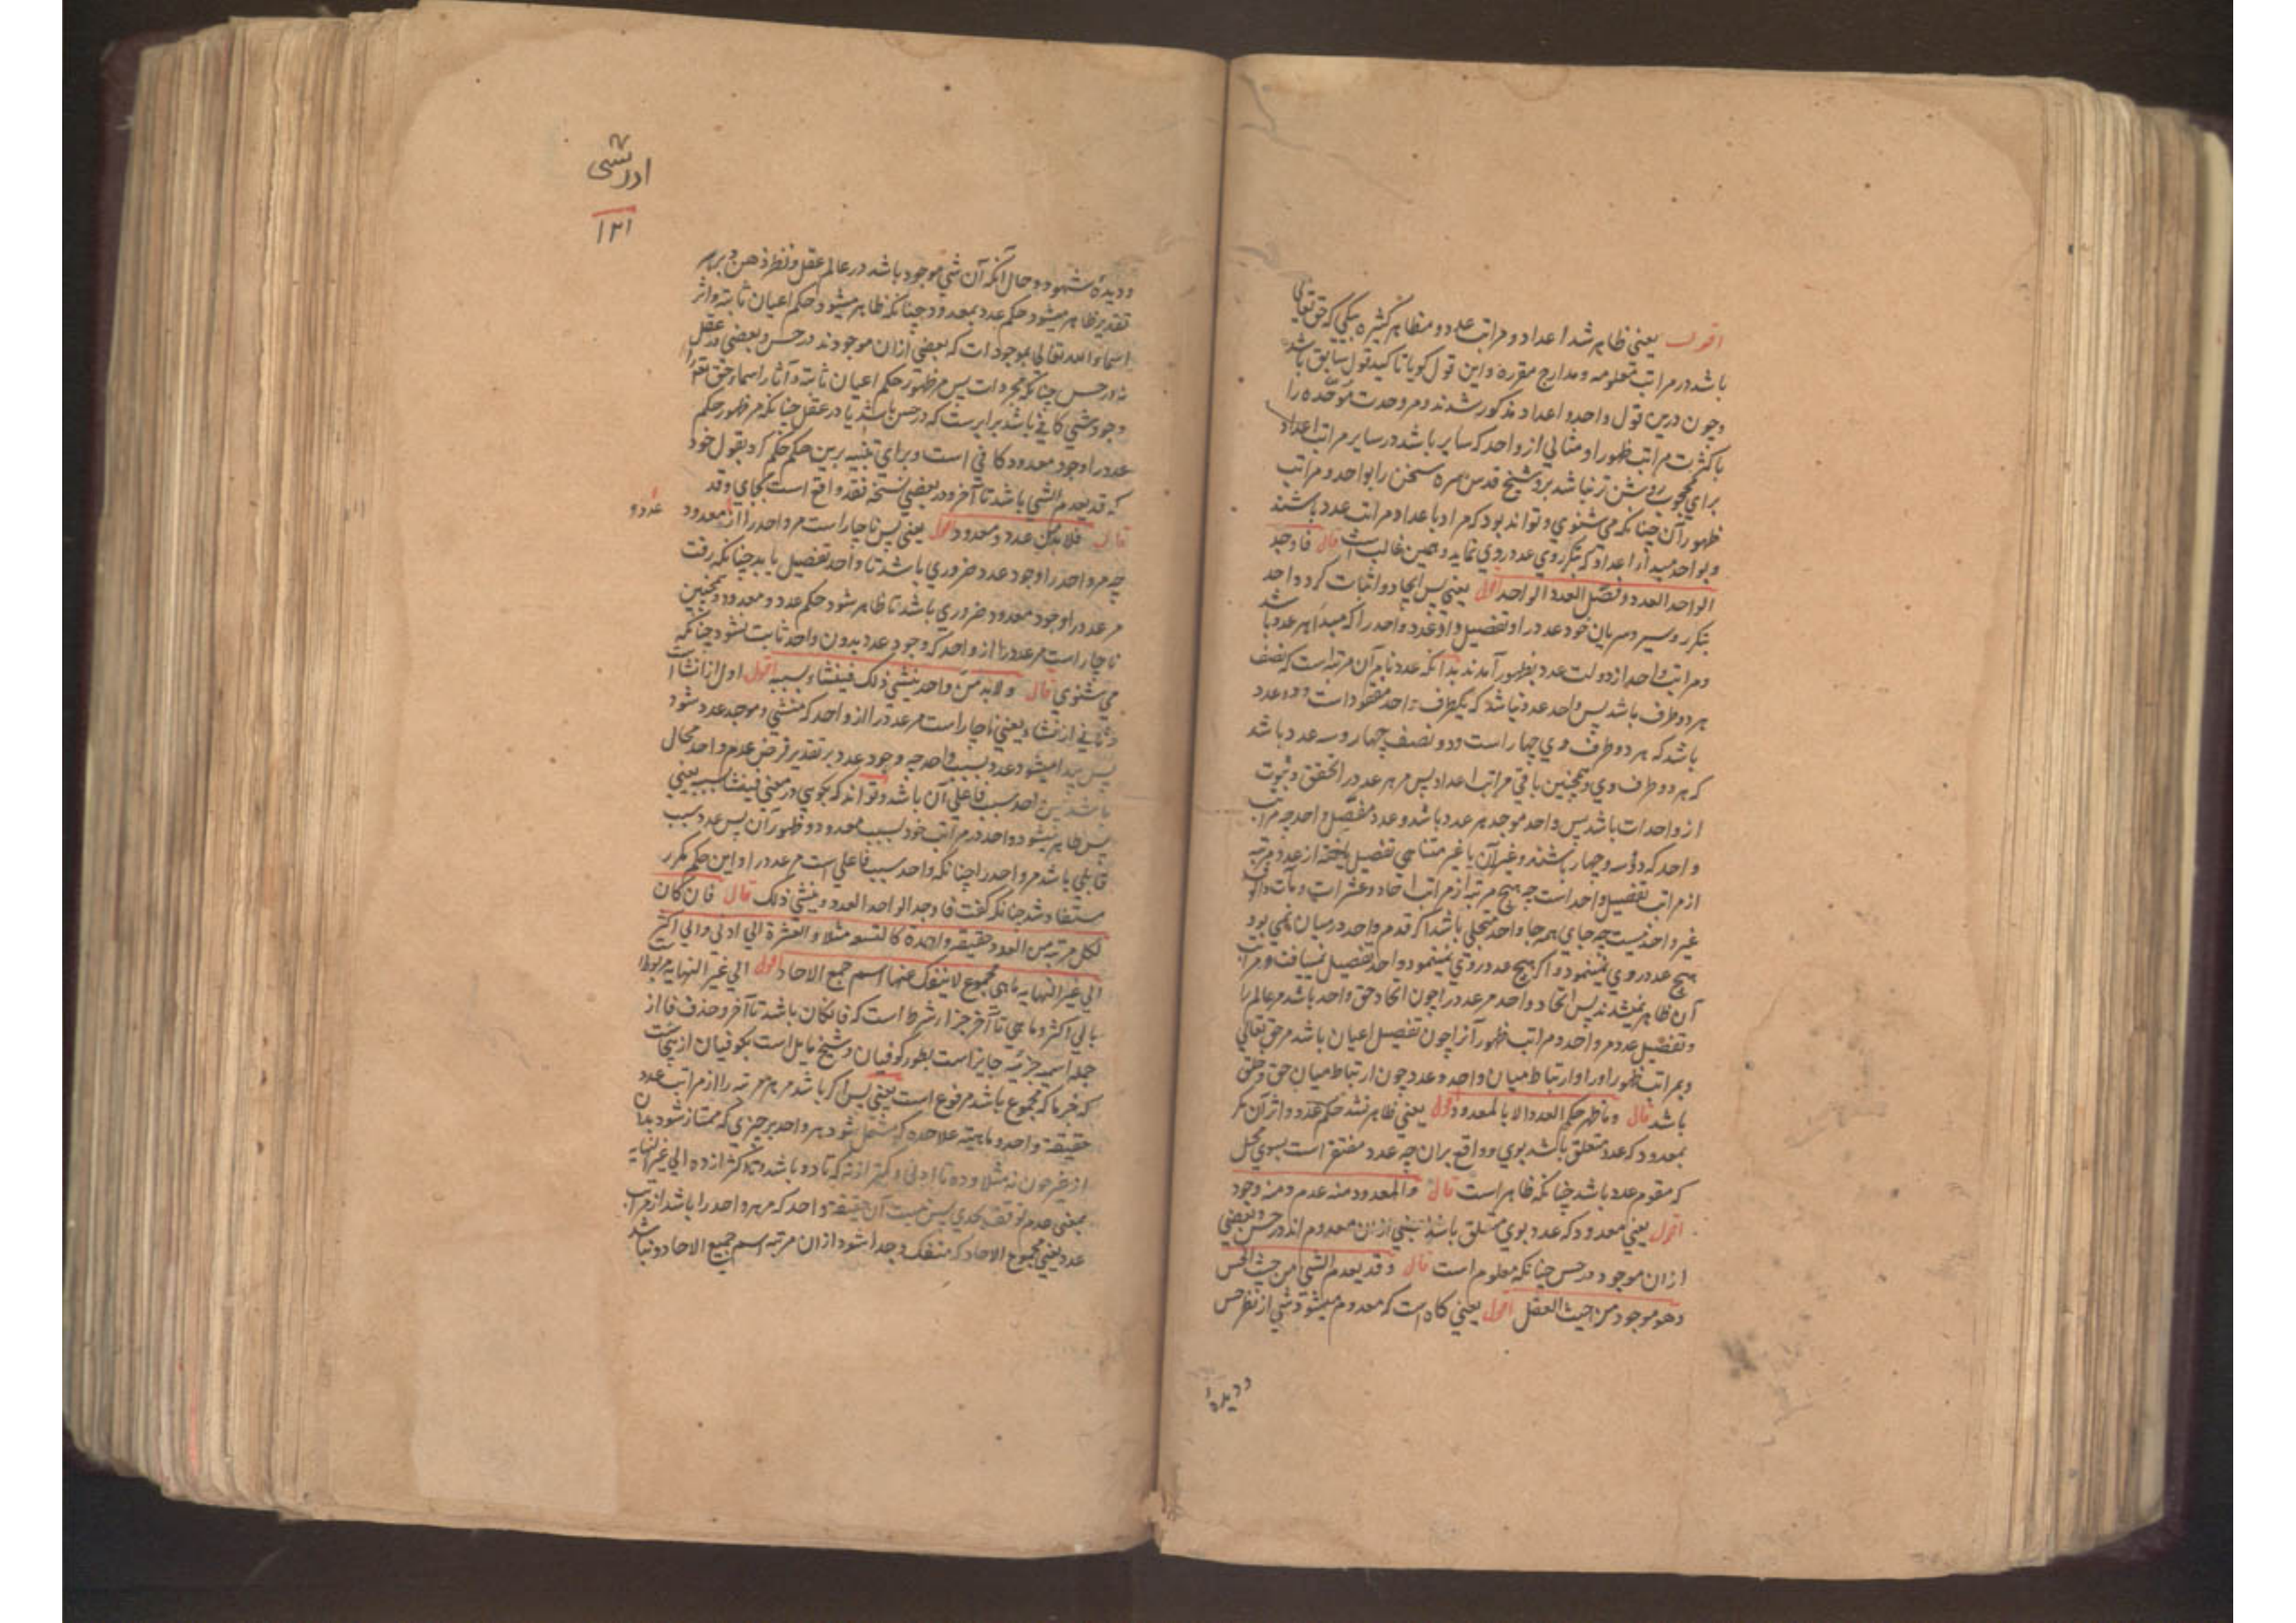 اقول یعنی ظاهر شد اعداد و مراتب عدد و مظاهر کثیره بیکی که حق تعالی
باشد در مراتب معلومه و مدارج مقرره و این قول کویا تاکید قول سابق باشد
و چون درین قول واحد و اعداد مذکور شدند و مر وحدت موحده را
با کثرت مراتب ظهور او مثالی از واحد که سایر باشد در سایر مراتب اعداد
برای محجوب روشن تر نباشد برد شیخ قدس سره سخن را بواحد و مراتب
ظهور آن چنانکه می شنوی و تواند بود که مراد باعداد مراتب عدد باشند
و بواحد مبدء از اعداد که بتکرر وی عدد روی نماید و همین غالب است قال فاوجد
الواحد العدد و فصّل العدد الواحد اقول یعنی پس ایجاد و اثبات کرد واحد
بتکرر و سیر و سریان خود عدد را و تفصیل داد عدد واحد را که مبدء هر عدد باشد
و مراتب واحد از دولت عدد بظهور آمدند بدانکه عدد نام آن مرتبه است که نصف
هر دو طرف باشد پس واحد عدد نباشد که یکطرف واحد مفقود است و دو عدد
باشد که هر دو طرف وی چهار است و دو نصف چهار و سه عدد باشد
که هر دو طرف وی و همچنین باقی مراتب اعداد پس مر هر عدد را تحقق و ثبوت
از واحدات باشد پس واحد موجد هر عدد باشد و عدد مفصّل واحد چه مراتب
واحد که دو و سه و چهار باشند و غیر آن با غیر متناهی تفصیل یافته از عدد و مرتبه
از مراتب تفصیل واحد است چه هیچ مرتبه از مراتب احاد و عشرات و مآت و الوف
غیر واحد نیست چه جای همه جا واحد متجلی باشد اگر قدم واحد در میان نمی بود
هیچ عدد روی نمینمود و اگر هیچ عدد روی نمینمود واحد تفصیل نمییافت و مراتب
آن ظاهر نمیشدند پس اتحاد واحد مر عدد را چون اتحاد حق واحد باشد مر عالم را
و تفصیل عدد مر واحد و مراتب ظهور آنرا چون تفصیل اعیان باشد مر حق تعالی
و مراتب ظهور او را و ارتباط میان واحد و عدد چون ارتباط میان حق و خلق
باشد قال و ما ظهر حکم العدد الا بالمعدود اقول یعنی ظاهر نشد حکم عدد و اثر آن مگر
بمعدود که عدد متعلق باشد بوی و واقع بران چه عدد مفتقر است بسوی محل
که مقوم عدد باشد چنانکه ظاهر است قال و المعدود منه عدم و منه وجود
اقول یعنی معدود که عدد بوی متعلق باشد بعضی ازان معدوم اند در حس و بعضی
ازان موجود در حس چنانکه معلوم است قال و قد یعدم الشی من حیث الحس
و هو موجود من حیث العقل اقول یعنی کاه است که معدوم میشود شی از نظر حس
و دیده
ادریسی
۱۲۱
و دیده شهود و حال آنکه آن شی موجود باشد در عالم عقل و نظر ذهن و بر هر
تقدیر ظاهر میشود حکم عدد بمعدود چنانکه ظاهر میشود حکم اعیان ثابته و اثر
اسماء الله تعالی بموجودات که بعضی ازان موجودند در حس و بعضی در عقل
نه در حس چنانکه مجردات پس مر ظهور حکم اعیان ثابته و آثار اسماء حق تعالی را
وجود شی کافی باشد برابر ست که در حس باشد یا در عقل چنانکه مر ظهور حکم
عدد را وجود معدود کافی است و برای تنبیه برین حکم حکم کرد بقول خود
که قد یعدم الشی باشد تا آخر و در بعضی نسخه فقد واقع است بجای و قد
قال فلا بد من عدد و معدود اقول یعنی پس ناچار است مر واحد را از معدود
عدد و
چه مر واحد را وجود عدد ضروری باشد تا واحد تفصیل یابد چنانکه رفت
مر عدد را وجود معدود ضروری باشد تا ظاهر شود حکم عدد و معدود و همچنین
ناچار است مر عدد را از واحد که وجود عدد بدون واحد ثابت نشود چنانکه
می شنوی قال و لابد من واحد ینشی ذلک فینشاء بسببه اقول اول از انشاء است
و ثانی از نشاء یعنی ناچار است مر عدد را از واحد که منشی و موجد عدد شود
پس پیدا میشود عدد بسبب واحد چه وجود عدد بر تقدیر فرض عدم واحد محال
باشد پس واحد سبب فاعلی آن باشد و تواند که بکویی در معنی فینشا بسببه یعنی
پس ظاهر میشود واحد در مراتب خود بسبب معدود و ظهور آن پس عدد سبب
قابلی باشد مر واحد را چنانکه واحد سبب فاعلی است مر عدد را و این حکم مکرر
مستفاد شد چنانکه کفت فاوجد الواحد العدد و ینشی ذلک قال فان کان
لکل مرتبه من العدد حقیقه واحدة کالتسعه مثلا و العشرة الی ادنی و الی اکثر
الی غیر النهایه ما هی مجموع لا ینفک عنها اسم جمع الاحاد اقول الی غیر النهایه مربوط
بالی اکثر و ما هی تا آخر جزاء شرط است که فان کان باشد تا آخر و حذف فا از
جمله اسمیه جزئیه جایز است بطور کوفیان و شیخ مایل است بکوفیان ازینجاست
که خبر ما که مجموع باشد مرفوع است یعنی پس اگر باشد مر هر مرتبه را از مراتب عدد
حقیقة واحد و ماهیته علاحده که مشتمل شود هر واحد بر چیزی که ممتاز شود بدان
از غیر چون نه مثلا و ده تا ادنی و کمتر از نه که تا دو باشد و تا اکثر از ده الی غیر النهایه
بمعنی عدم توقف بحدی پس نیست آن حقیقة واحد که مر هر واحد را باشد از مراتب
عدد یعنی مجموع الاحاد که منفک و جدا شود ازان مرتبه اسم جمیع الاحاد و نباشد